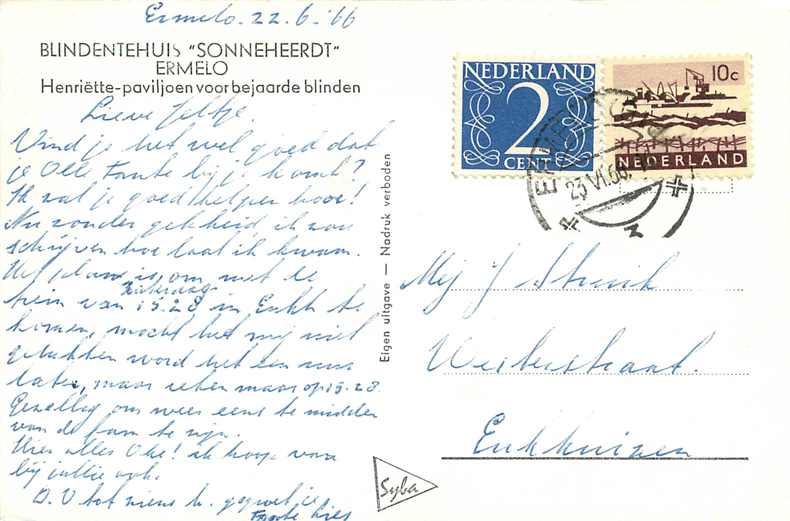 Ermelo. 22.6.'66
BLINDENTEHUIS "SONNEHEERDT"
ERMELO
Henriëtte-paviljoen voor bejaarde blinden
Lieve Jeltje.
Vind je het wel goed dat
je Olle Tante bij je komt?
Ik zal je goed helpen hoor!
Nu zonder gekheid, ik zou
schrijven hoe laat ik kwam.
Het plan is, om met de
Zaterdag
trein van 15.28 in Enkh te
komen, mocht het mij niet
gelukken word het een uur
later, maar reken maar op 15.28.
Gezellig om weer eens te midden
van de fam te zijn.
Hier alles Oke! ik hoop van
bij jullie ook.
D.V tot ziens h. gegroet je
Tante Lies
Eigen uitgave — Nadruk verboden
Syba
NEDERLAND
2
CENT
10c
NEDERLAND
ERMELO
23.VI.66
Mej J
Westerstraat
Enkhuizen